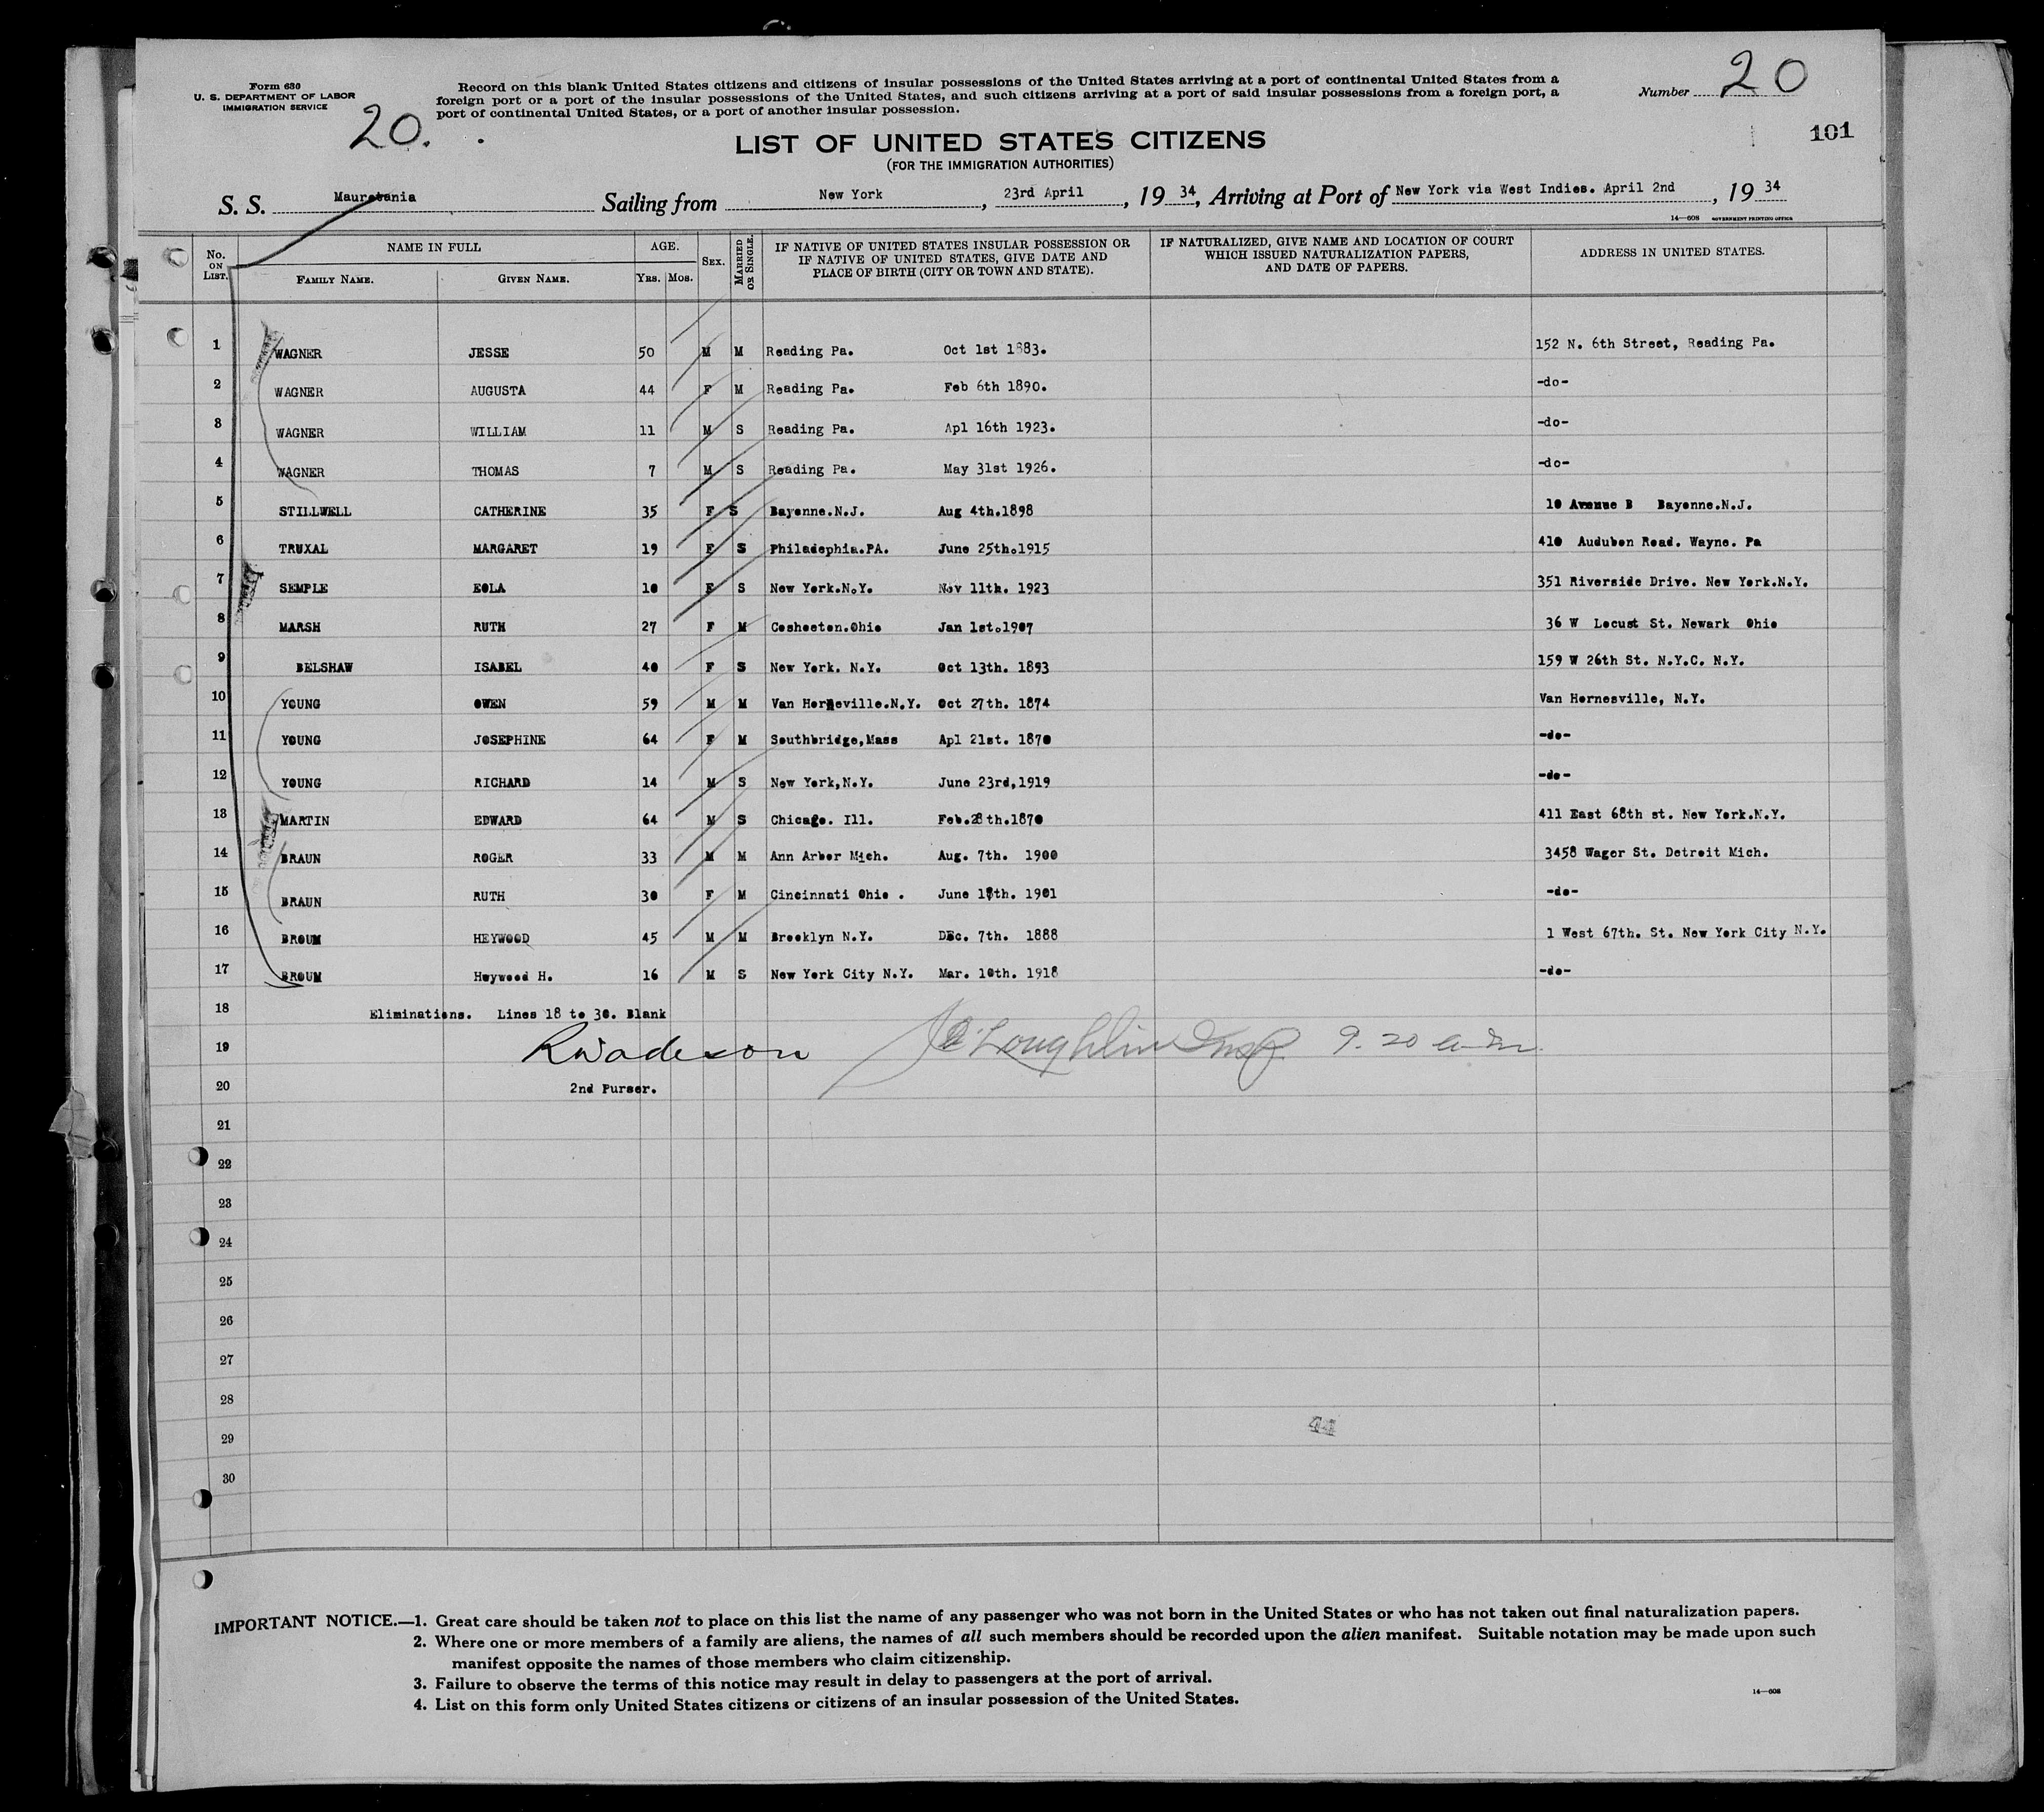 Form 630
U. S. DEPARTMENT OF LABOR
IMMIGRATION SERVICE
20.
Record on this blank United States citizens and citizens of insular possessions of the United States arriving at a port of continental United States from a
foreign port or a port of the insular possessions of the United States, and such citizens arriving at a port of said insular possessions from a foreign port, a
port of continental United States, or a port of another insular possession.
Number 20
101
LIST OF UNITED STATES CITIZENS
(FOR THE IMMIGRATION AUTHORITIES)
S. S. Mauretania Sailing from New York, 23rd April, 19 34, Arriving at Port of New York via West Indies. April 2nd, 19 34
14—608 GOVERNMENT PRINTING OFFICE
No. ON LIST. NAME IN FULL AGE. SEX. MARRIED OR SINGLE. IF NATIVE OF UNITED STATES INSULAR POSSESSION OR IF NATIVE OF UNITED STATES, GIVE DATE AND PLACE OF BIRTH (CITY OR TOWN AND STATE). IF NATURALIZED, GIVE NAME AND LOCATION OF COURT WHICH ISSUED NATURALIZATION PAPERS, AND DATE OF PAPERS. ADDRESS IN UNITED STATES.
FAMILY NAME. GIVEN NAME. YRS. MOS.
1 WAGNER JESSE 50 M M Reading Pa. Oct 1st 1883. 152 N. 6th Street, Reading Pa.
2 WAGNER AUGUSTA 44 F M Reading Pa. Feb 6th 1890. -do-
3 WAGNER WILLIAM 11 M S Reading Pa. Apl 16th 1923. -do-
4 WAGNER THOMAS 7 M S Reading Pa. May 31st 1926. -do-
5 STILLWELL CATHERINE 35 F S Bayonne.N.J. Aug 4th.1898 10 Avenue B Bayonne.N.J.
6 TRUXAL MARGARET 19 F S Philadephia.PA. June 25th.1915 410 Audubon Road. Wayne. Pa
7 SEMPLE EOLA 10 F S New York.N.Y. Nov 11th. 1923 351 Riverside Drive. New York.N.Y.
8 MARSH RUTH 27 F M Coshocton.Ohio Jan 1st.1907 36 W Locust St. Newark Ohio
9 BELSHAW ISABEL 40 F S New York. N.Y. Oct 13th. 1893 159 W 26th St. N.Y.C. N.Y.
10 YOUNG OWEN 59 M M Van Horneville.N.Y. Oct 27th. 1874 Van Hornesville, N.Y.
11 YOUNG JOSEPHINE 64 F M Southbridge,Mass Apl 21st. 1870 -do-
12 YOUNG RICHARD 14 M S New York,N.Y. June 23rd,1919 -do-
13 MARTIN EDWARD 64 M S Chicago. Ill. Feb.28th.1870 411 East 68th st. New York.N.Y.
14 BRAUN ROGER 33 M M Ann Arbor Mich. Aug. 7th. 1900 3458 Wager St. Detroit Mich.
15 BRAUN RUTH 30 F M Cincinnati Ohio . June 18th. 1901 -do-
16 BROUM HEYWOOD 45 M M Brooklyn N.Y. DEc. 7th. 1888 1 West 67th. St. New York City N.Y.
17 BROUM Heywood H. 16 M S New York City N.Y. Mar. 10th. 1918 -do-
18 Eliminations. Lines 18 to 30. Blank
19 RWadeson J O'Loughlin Insp. 9.20 a m
20 2nd Purser.
21
22
23
24
25
26
27
28
29 44
30
IMPORTANT NOTICE.—1. Great care should be taken not to place on this list the name of any passenger who was not born in the United States or who has not taken out final naturalization papers.
2. Where one or more members of a family are aliens, the names of all such members should be recorded upon the alien manifest. Suitable notation may be made upon such
manifest opposite the names of those members who claim citizenship.
3. Failure to observe the terms of this notice may result in delay to passengers at the port of arrival.
4. List on this form only United States citizens or citizens of an insular possession of the United States.
14—608